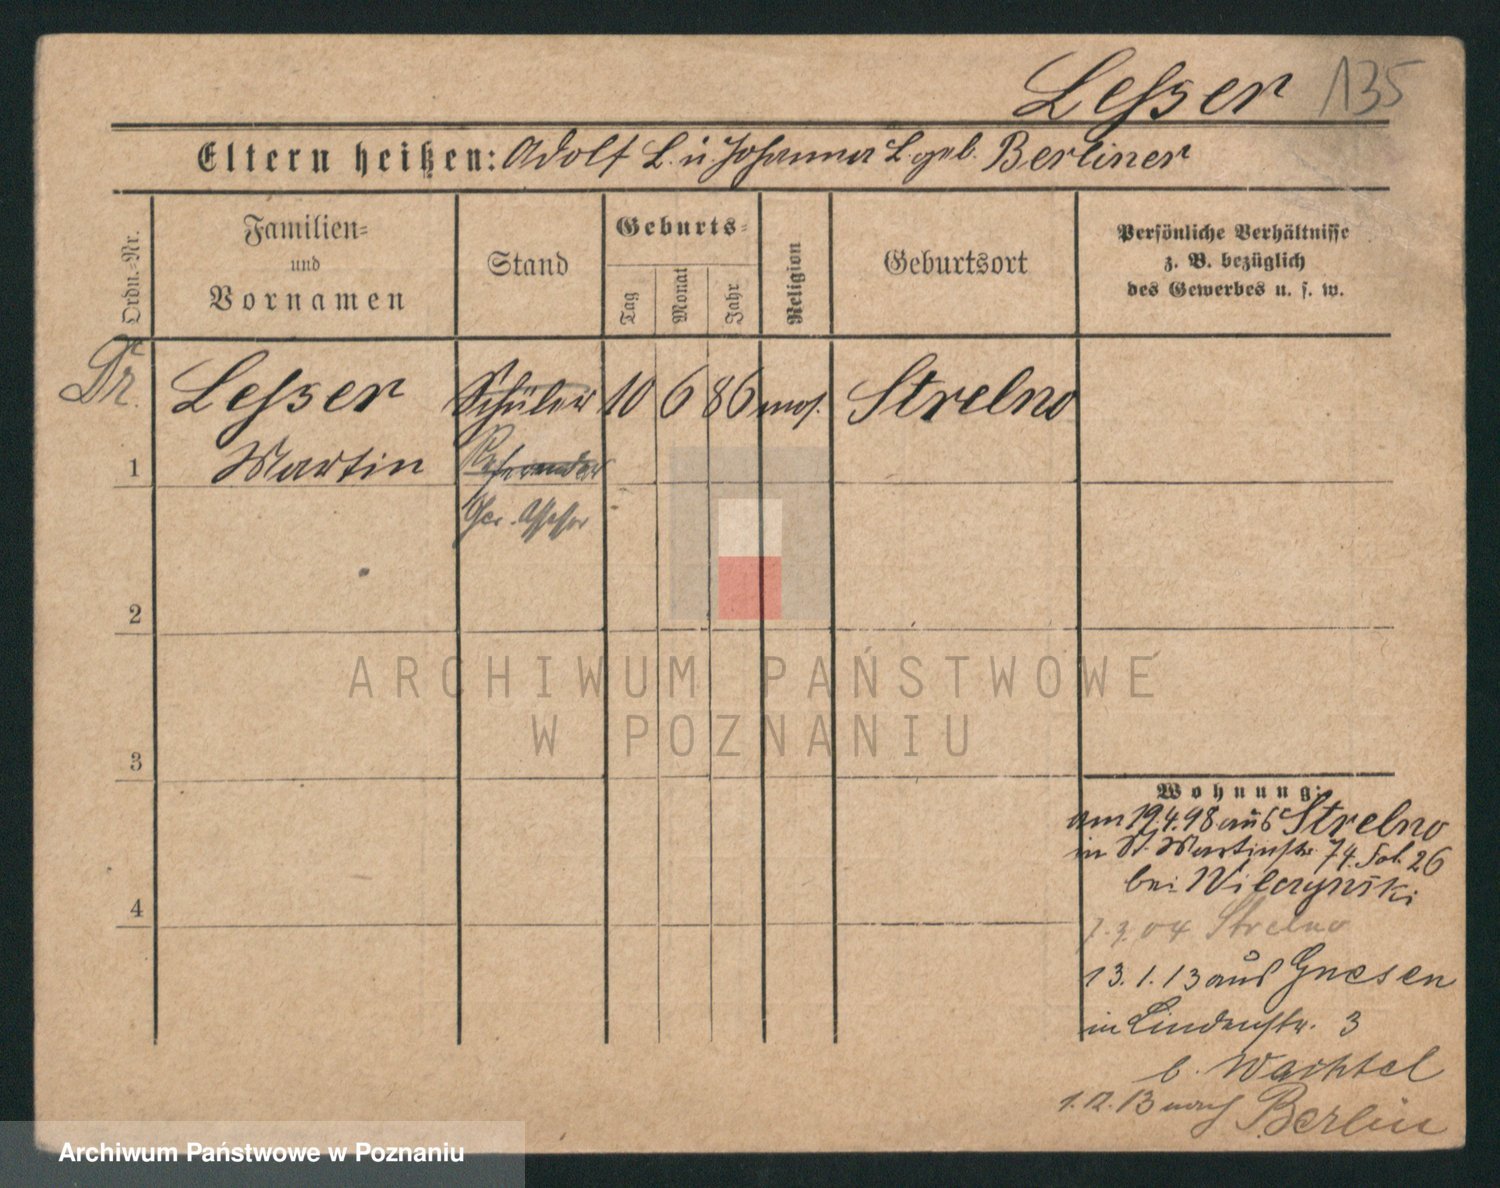 Leſser 135
Eltern heißen: Adolf L. u. Johanna L. geb. Berliner
Ordn.-Nr.
Familien-
und
Vornamen
Stand
Geburts-
Tag
Monat
Jahr
Religion
Geburtsort
Persönliche Verhältnisse
z. B. bezüglich
des Gewerbes u. s. w.
Dr. Leſser Schüler 10 6 86 mos. Strelno
1 Martin Referendar
Ger. Assessor
2
3
4
ARCHIWUM PAŃSTWOWE
W POZNANIU
Wohnung:
am 19.4.98 aus Strelno
in St. Martinstr. 74. Fol. 26
bei Wilczynski
7.9.04 Strelno
13.1.13 aus Gnesen
in Lindenstr. 3
b. Wachtel
1.12.13 nach Berlin
Archiwum Państwowe w Poznaniu